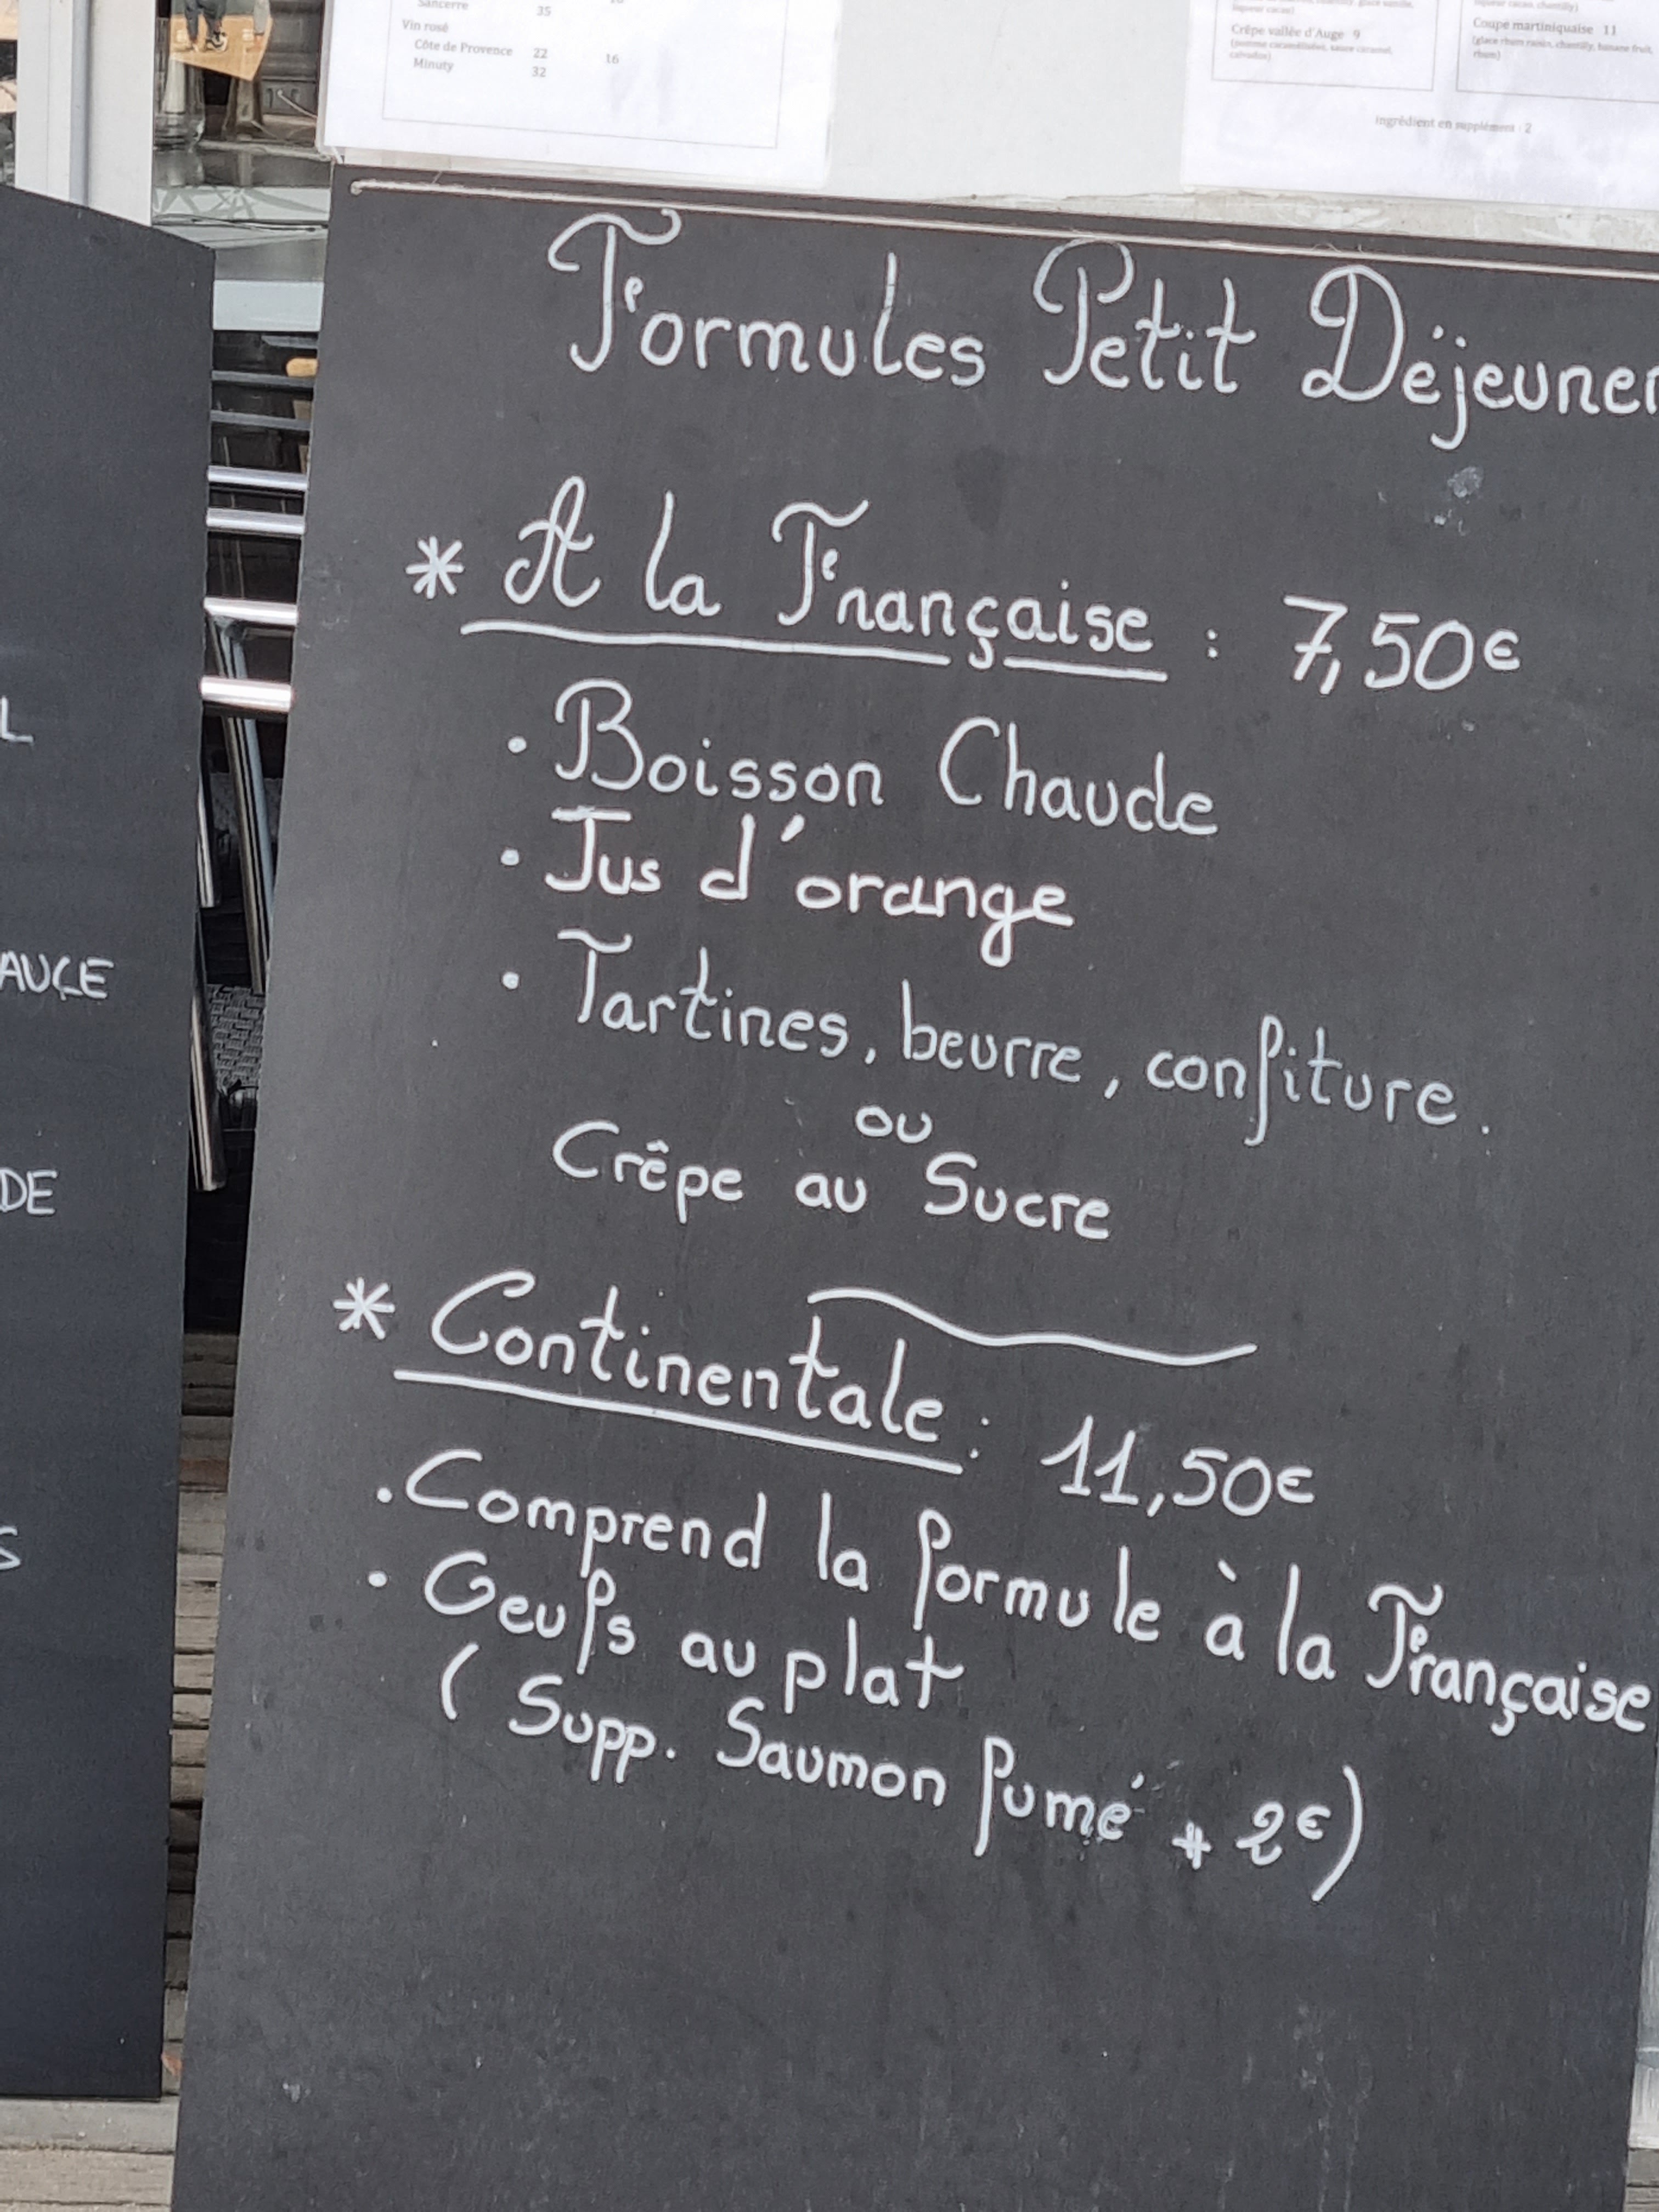 Sancerre 35
Vin rosé
Côte de Provence 22 16
Minuty 32
Crêpe vallée d'Auge 9
Coupe martiniquaise 11
(glace rhum raisin, chantilly, banane fruit, rhum)
ingrédient en supplément : 2
Formules Petit Déjeuner
* A la Française : 7,50€
. Boisson Chaude
. Jus d'orange
. Tartines, beurre, confiture.
ou
Crêpe au Sucre
* Continentale : 11,50€
. Comprend la formule à la Française
. Oeufs au plat
( Supp. Saumon fumé + 2€)
L
AUCE
DE
S